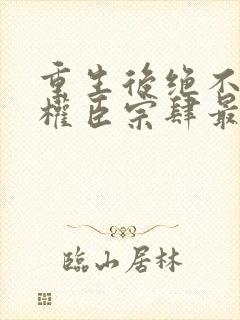 重生後绝不
權臣宗肆最
臨山居林